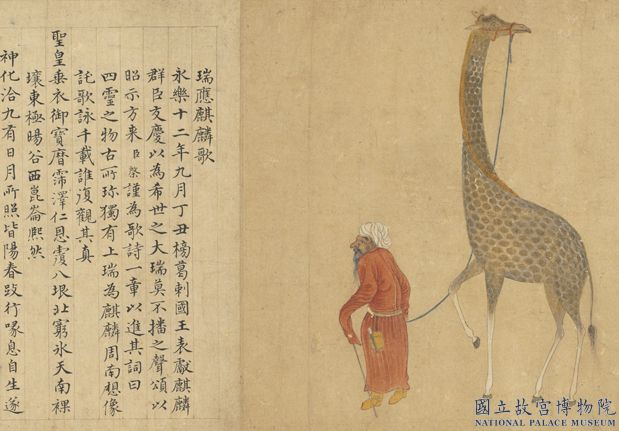 瑞應麒麟歌
永樂十二年九月丁丑榜葛剌國王表獻麒麟
群臣交慶以為希世之大瑞莫不播之聲頌以
昭示方來臣棨謹為歌詩一章以進其詞曰
四靈之物古所珍獨有上瑞為麒麟周南想像
託歌詠千載誰復觀其真
聖皇垂衣御寶曆霈澤仁恩覃八垠北窮冰天南裸
壤東極暘谷西崑崙熙然
神化洽九有日月所照皆陽春跂行喙息自生遂
國立故宮博物院
NATIONAL PALACE MUSEUM